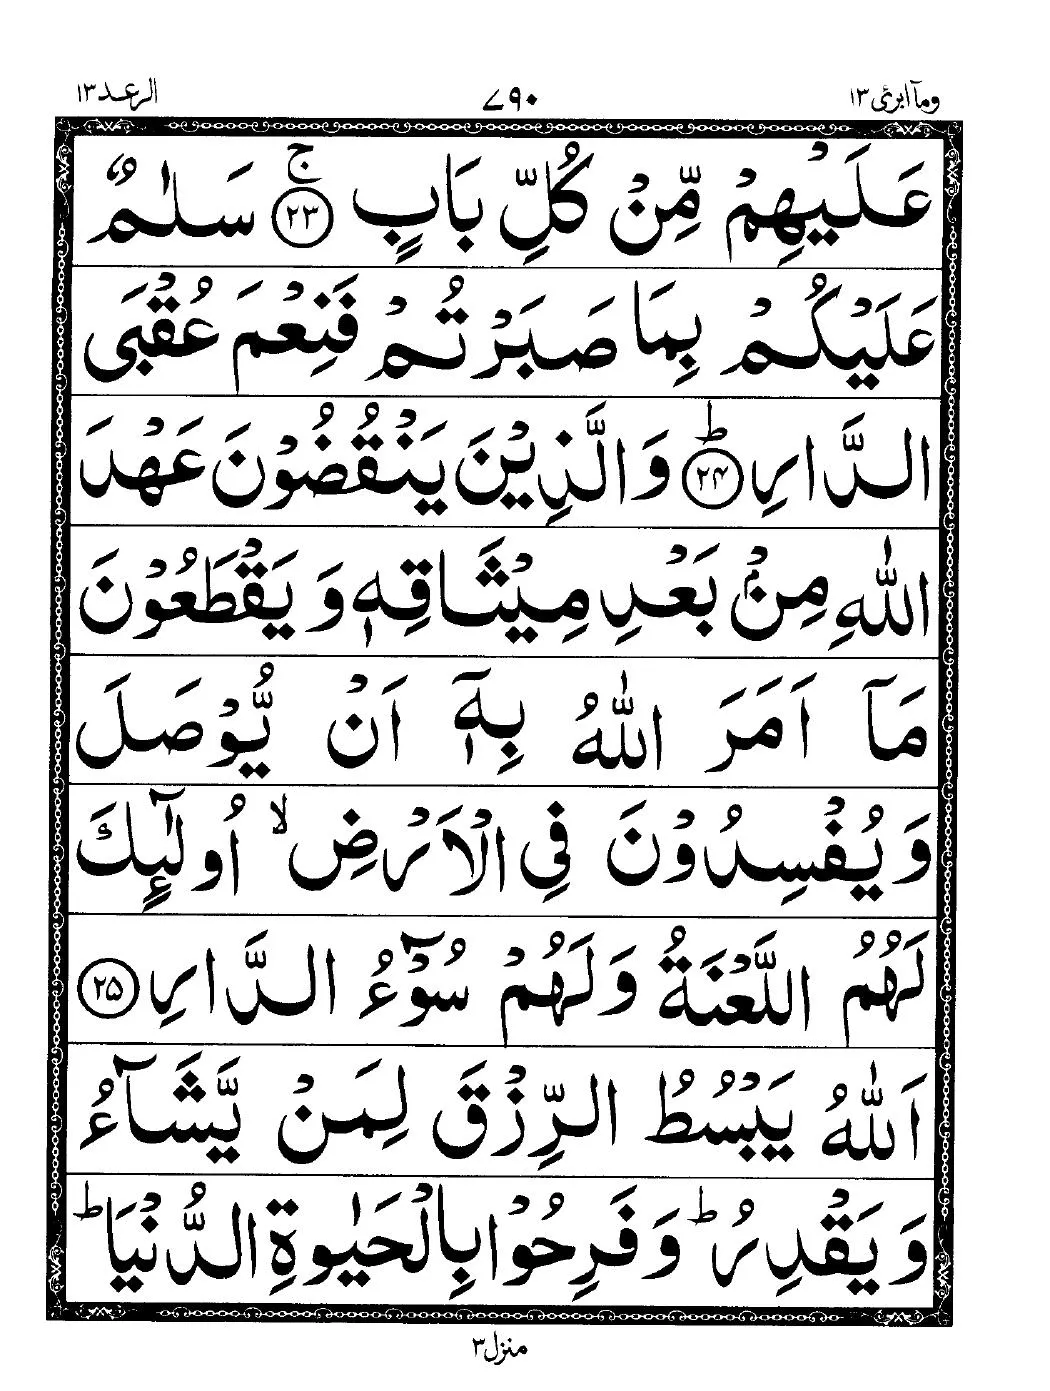 ومآ ابرئ ١٣ ٧٩٠ الرعد ١٣
عَلَيْهِمْ مِّنْ كُلِّ بَابٍ ۚ ﴿۲۳﴾ سَلٰمٌ
عَلَيْكُمْ بِمَا صَبَرْتُمْ فَنِعْمَ عُقْبَى
الدَّارِ ؕ ﴿۲۴﴾ وَالَّذِيْنَ يَنْقُضُوْنَ عَهْدَ
اللّٰهِ مِنْۢ بَعْدِ مِيْثَاقِهٖ وَيَقْطَعُوْنَ
مَاۤ اَمَرَ اللّٰهُ بِهٖۤ اَنْ يُّوْصَلَ
وَيُفْسِدُوْنَ فِي الْاَرْضِ ۙ اُولٰٓئِكَ
لَهُمُ اللَّعْنَةُ وَلَهُمْ سُوْٓءُ الدَّارِ ﴿۲۵﴾
اَللّٰهُ يَبْسُطُ الرِّزْقَ لِمَنْ يَّشَآءُ
وَيَقْدِرُ ؕ وَفَرِحُوْا بِالْحَيٰوةِ الدُّنْيَا ؕ
منزل ٣